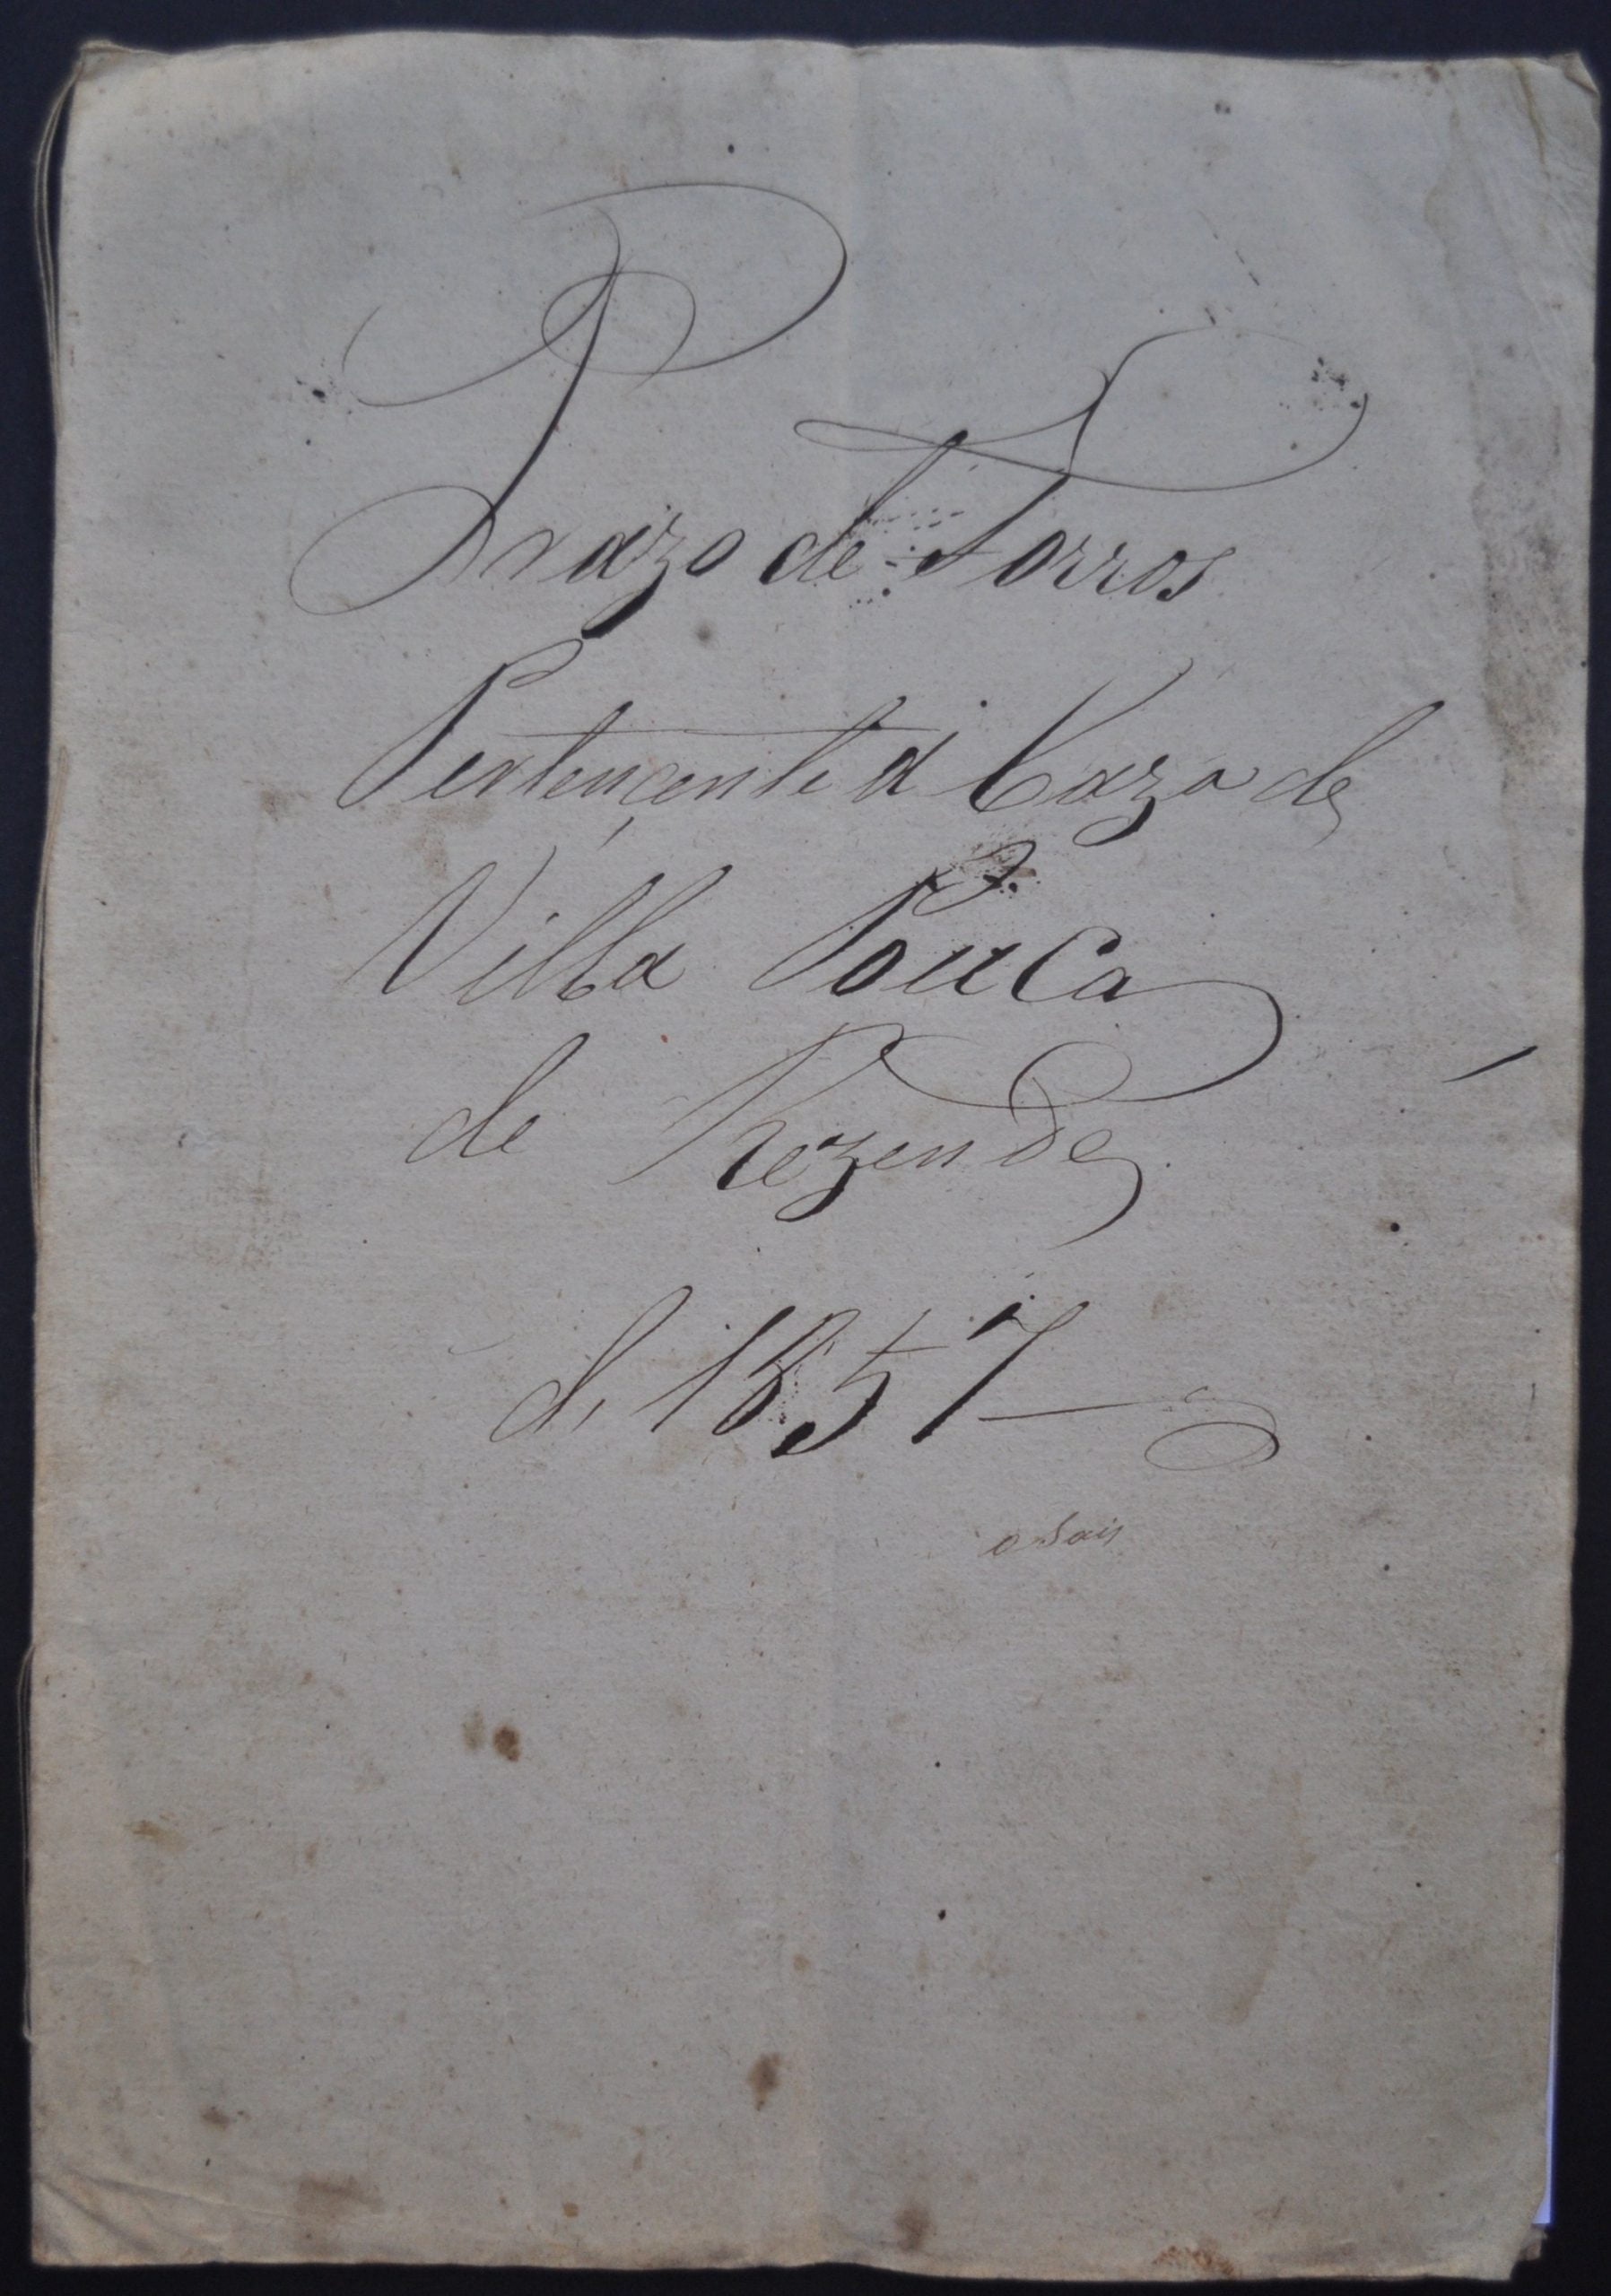 Prazo de Forros
Pertençente á Caza de
Villa Pouca
de Rezende
de 1857